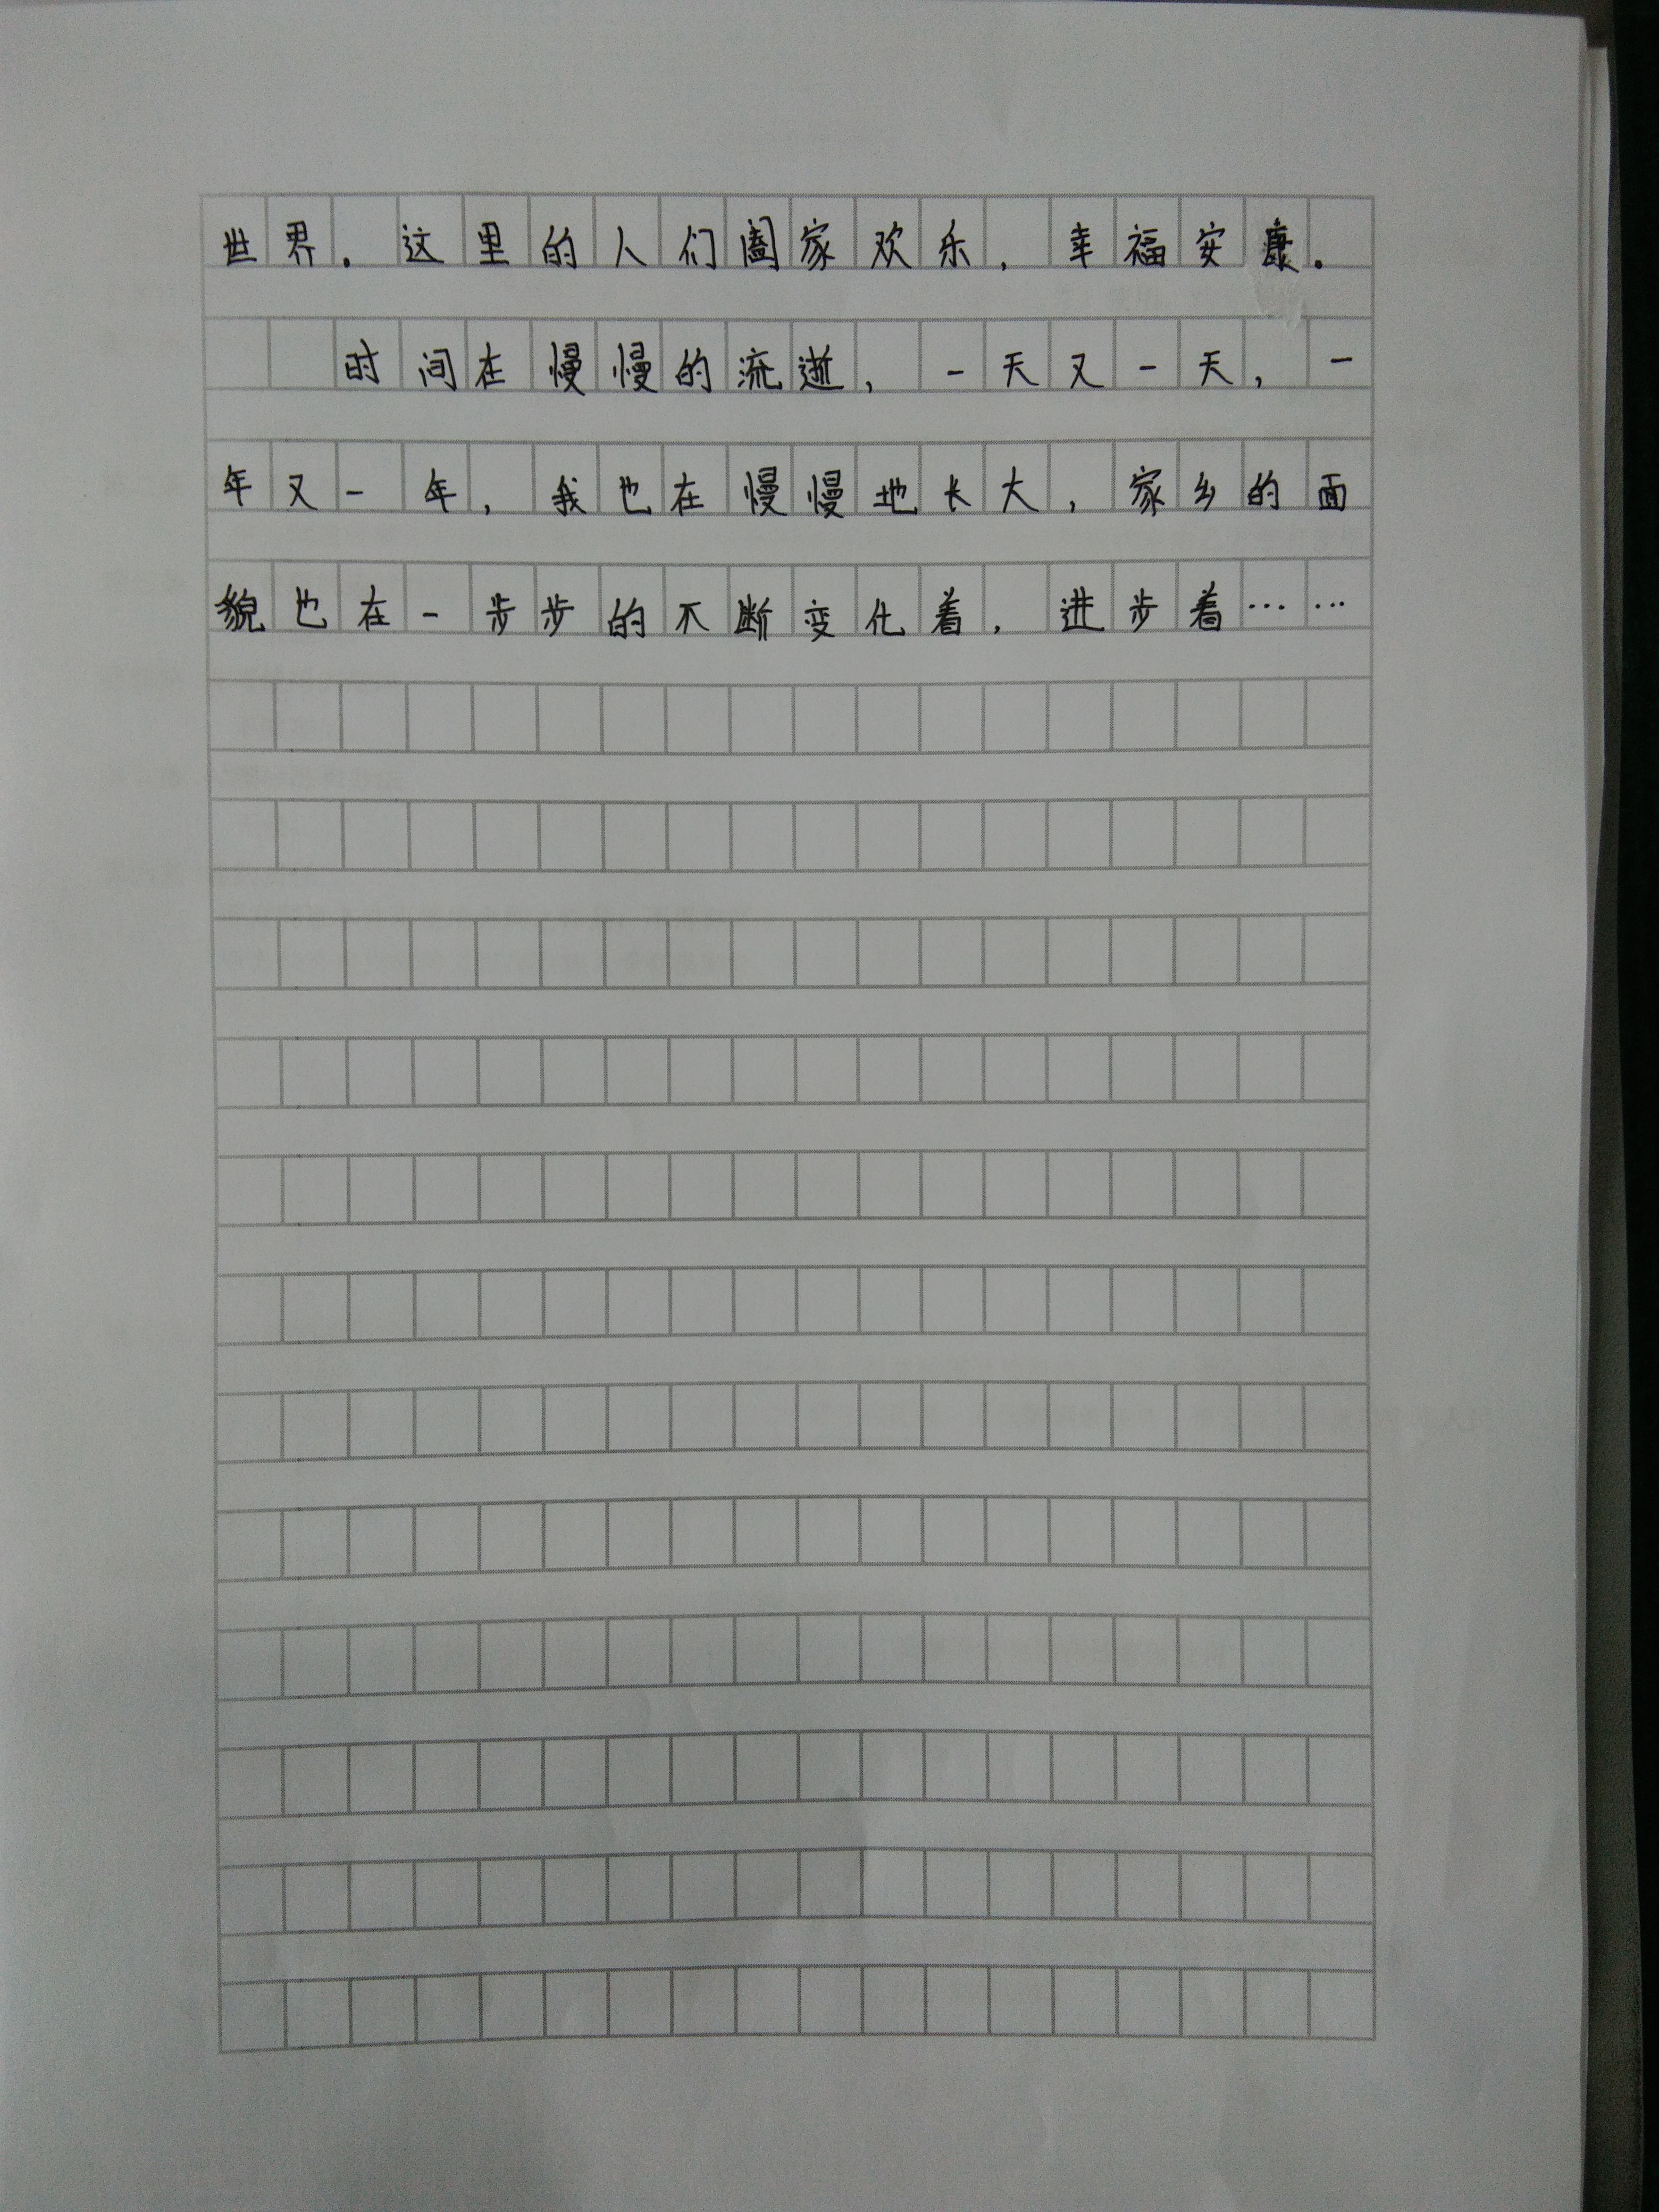 世界。这里的人们阖家欢乐，幸福安康。
时间在慢慢的流逝，一天又一天，一
年又一年，我也在慢慢地长大，家乡的面
貌也在一步步的不断变化着，进步着……